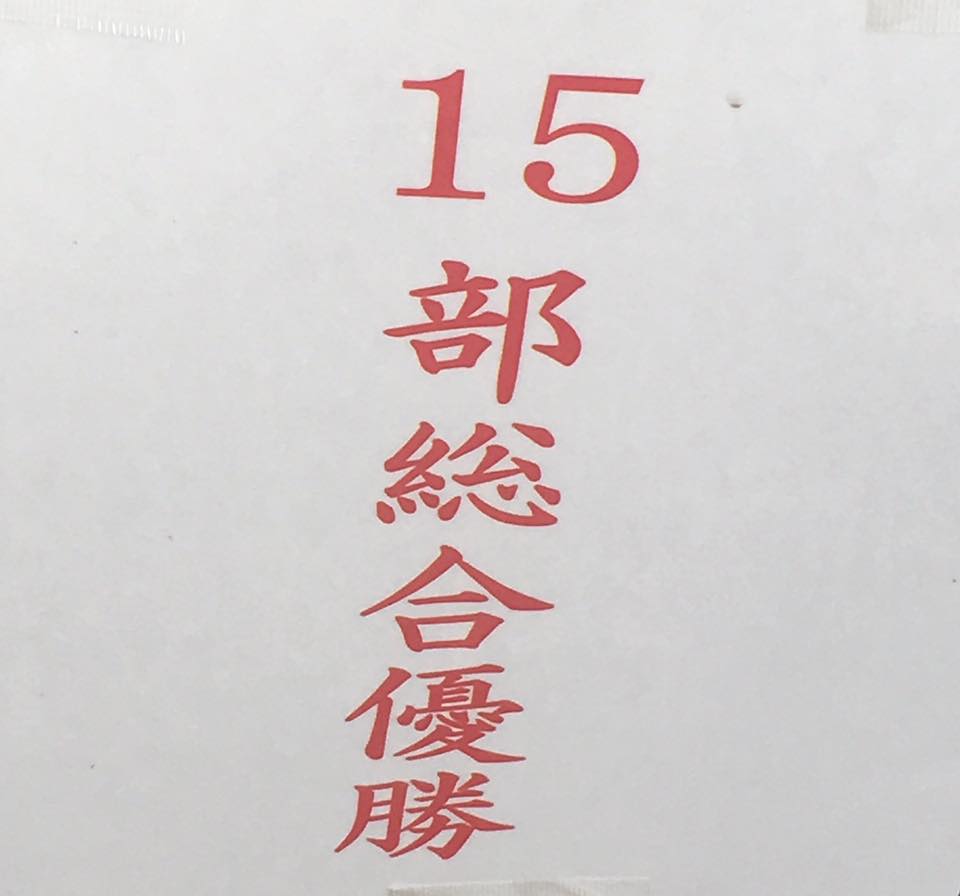 15部総合優勝